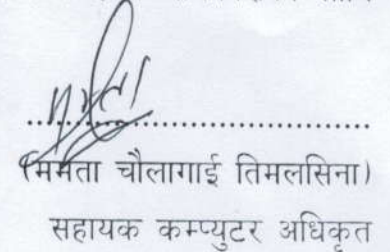 ममता
..........................................
(ममता चौलागाई तिमलसिना)
सहायक कम्प्युटर अधिकृत